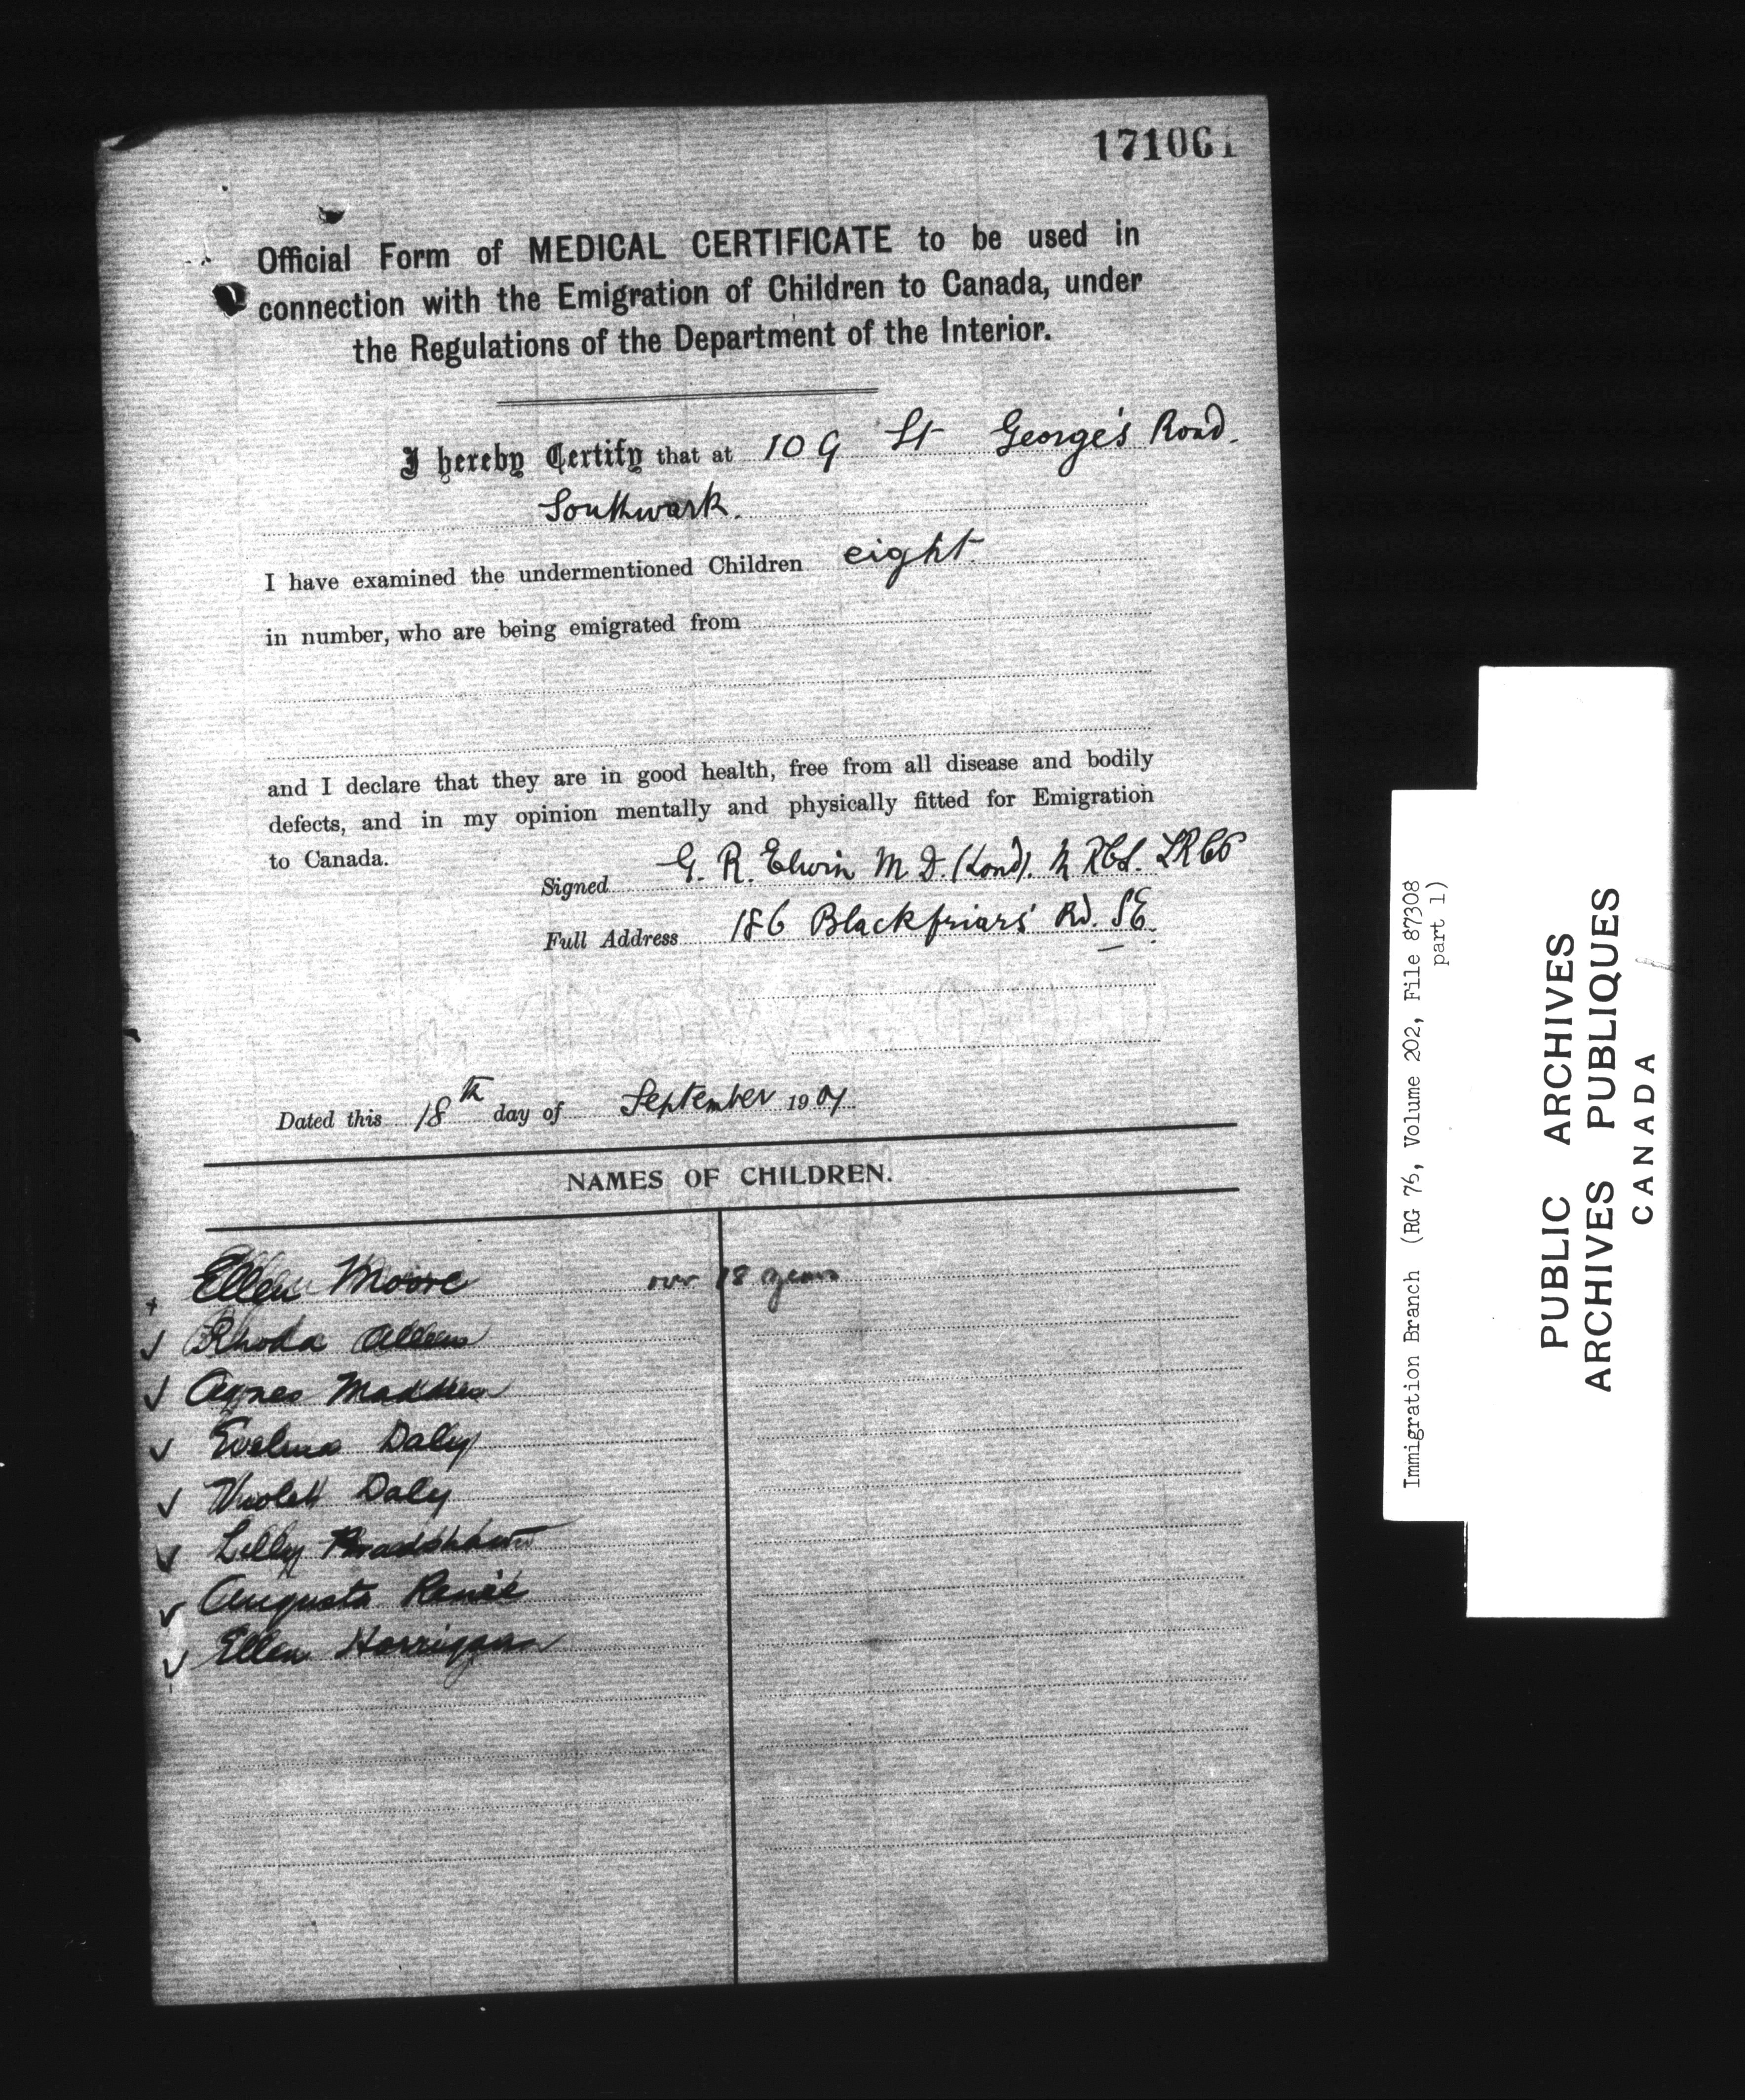 171061
Official Form of MEDICAL CERTIFICATE to be used in
connection with the Emigration of Children to Canada, under
the Regulations of the Department of the Interior.
I hereby Certify that at 109 St George's Road.
Southwark.
I have examined the undermentioned Children eight.
in number, who are being emigrated from
and I declare that they are in good health, free from all disease and bodily
defects, and in my opinion mentally and physically fitted for Emigration
to Canada.
Signed G. R. Elwin M.D. (Lond). M RCS. LRCP
Full Address 186 Blackfriars' Rd. SE.
Dated this 18th day of September 1907.
NAMES OF CHILDREN.
Ellen Moore over 18 years
Rhoda
Agnes Madden
Daly
Violett Daly
Lilly Bradshaw
Augusta
Ellen Horrigan
Immigration Branch (RG 76, Volume 202, File 87308
part 1)
PUBLIC ARCHIVES
ARCHIVES PUBLIQUES
CANADA